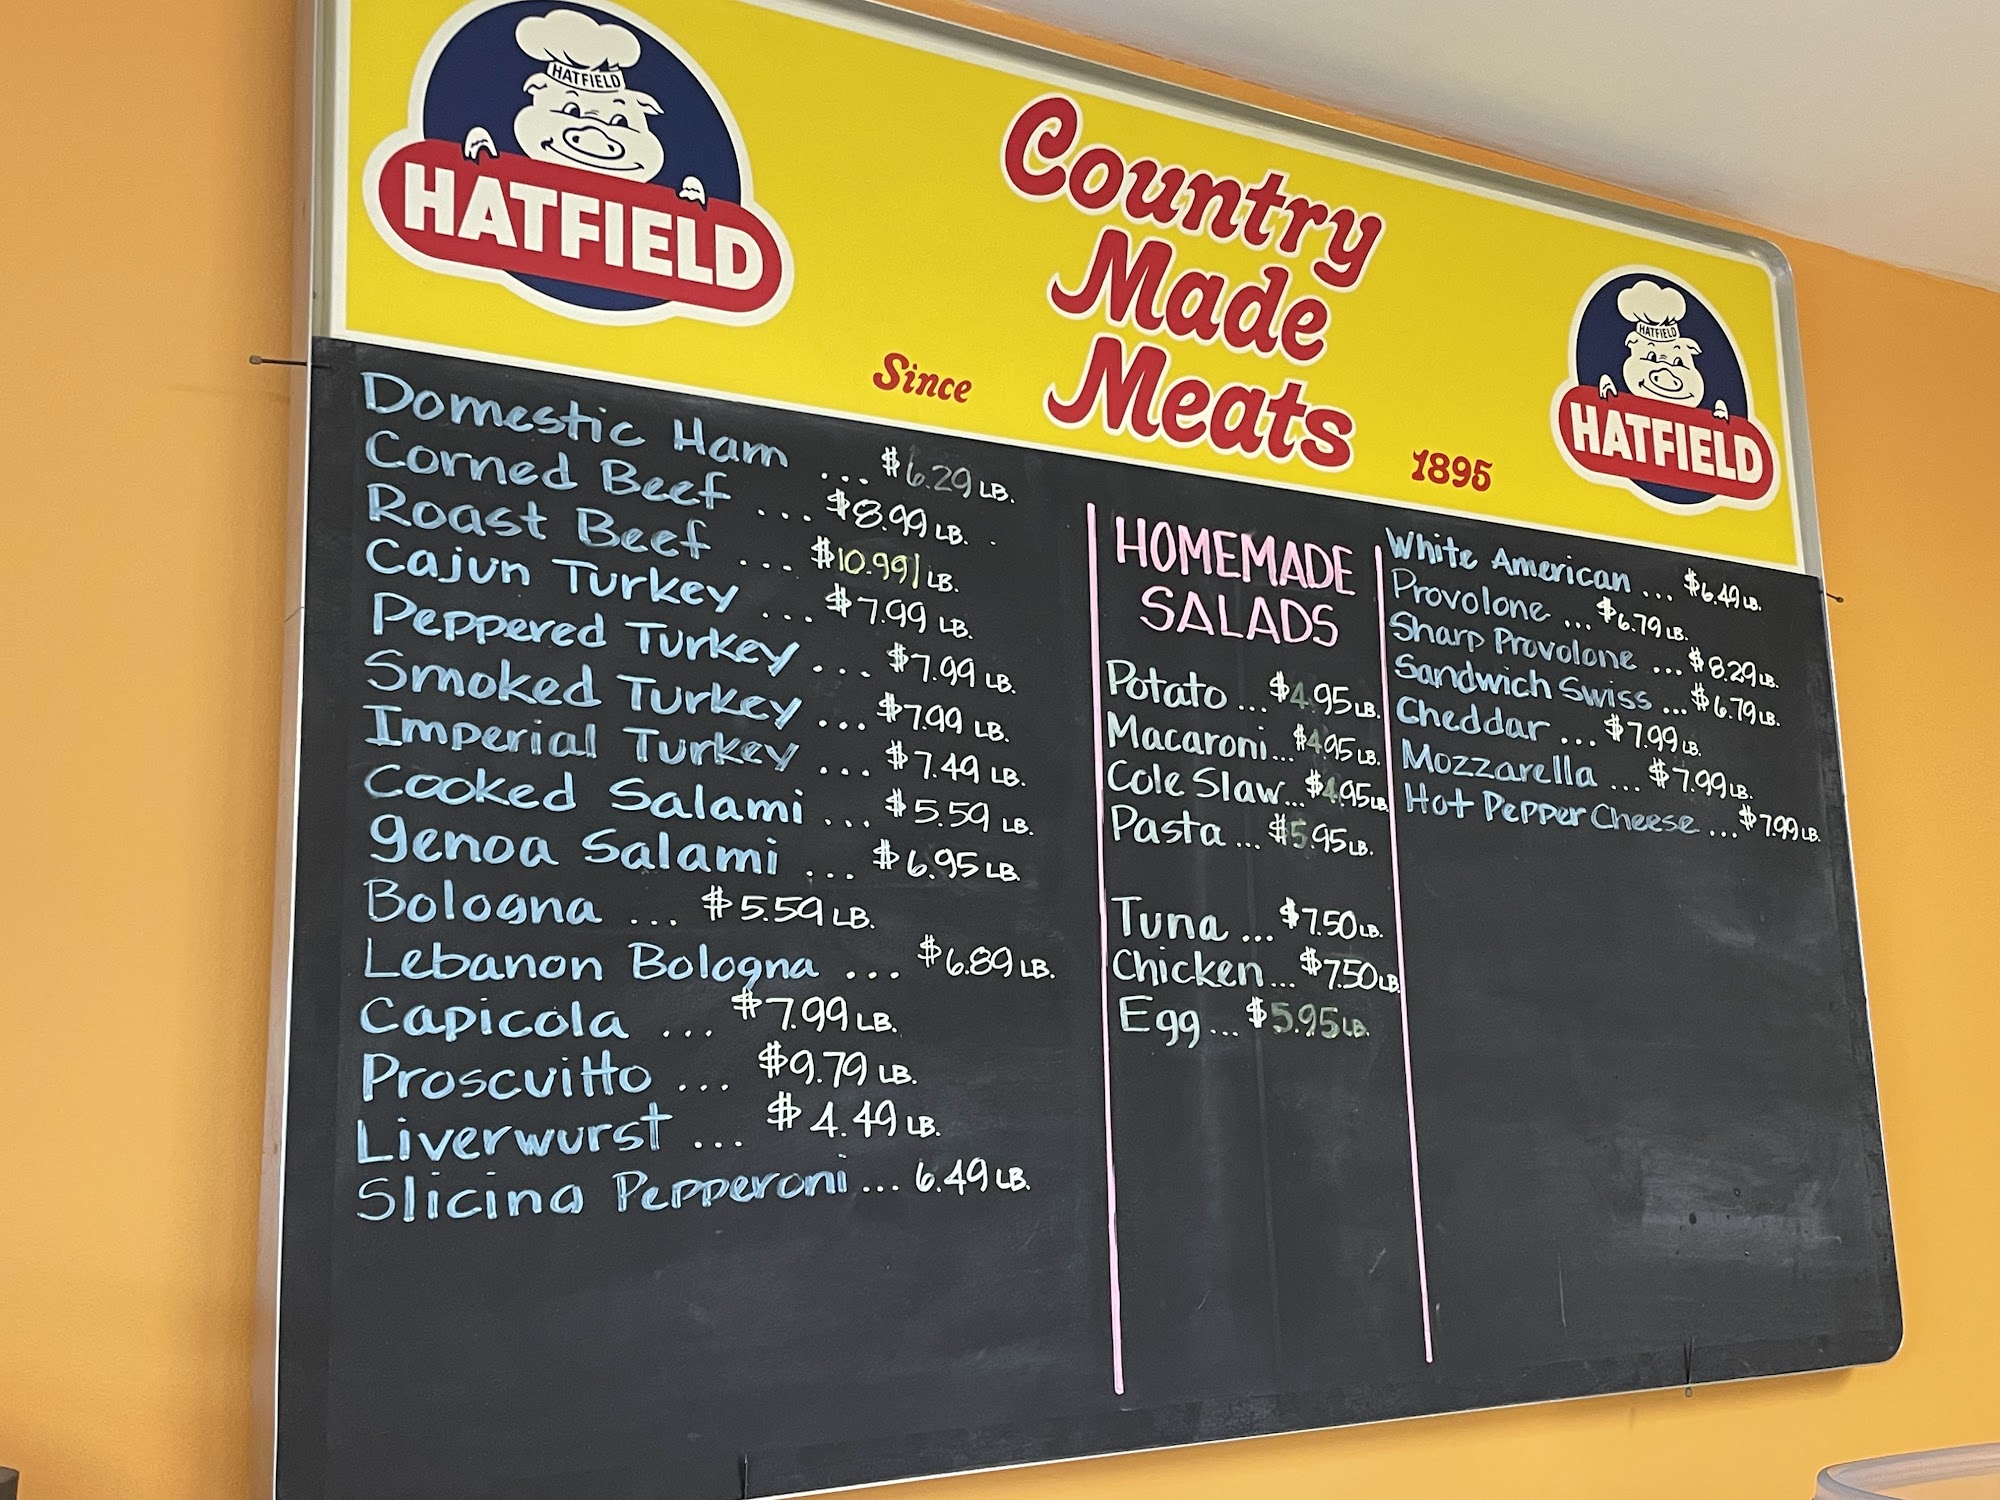 HATFIELD
HATFIELD
Country
Made
Meats
Since
1895
HATFIELD
HATFIELD
Domestic Ham ... $6.29 LB.
Corned Beef ... $8.99 LB.
Roast Beef ... $10.99 LB.
Cajun Turkey ... $7.99 LB.
Peppered Turkey ... $7.99 LB.
Smoked Turkey ... $7.99 LB.
Imperial Turkey ... $7.49 LB.
Cooked Salami ... $5.59 LB.
Genoa Salami ... $6.95 LB.
Bologna ... $5.59 LB.
Lebanon Bologna ... $6.89 LB.
Capicola ... $7.99 LB.
Proscuitto ... $9.79 LB.
Liverwurst ... $4.49 LB.
Slicing Pepperoni ... 6.49 LB.
HOMEMADE
SALADS
Potato ... $4.95 LB.
Macaroni... $4.95 LB.
Cole Slaw... $4.95 LB.
Pasta ... $5.95 LB.
Tuna ... $7.50 LB.
Chicken... $7.50 LB.
Egg ... $5.95 LB.
White American ... $6.49 LB.
Provolone ... $6.79 LB.
Sharp Provolone ... $8.29 LB.
Sandwich Swiss ... $6.79 LB.
Cheddar ... $7.99 LB.
Mozzarella ... $7.99 LB.
Hot Pepper Cheese ... $7.99 LB.